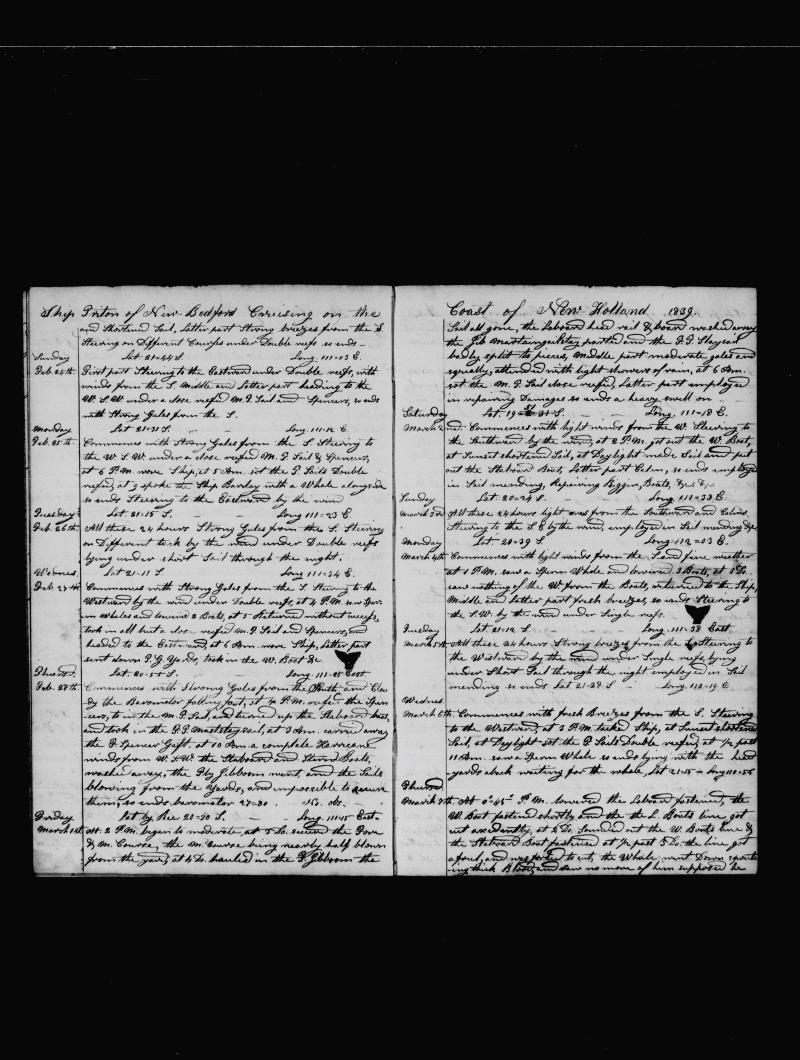 Ship Triton of New Bedford Cruising on the
and Shortned Sail, Latter part Strong breezes from the S.
Steering on Different Courses under Double reefs so ends
Lat 21-44 S. Long. 111-03 E.
Sunday
Feb. 24th First part Steering to the Eastward under Double reefs, with
winds from the S. Middle and Latter part heading to the
W.S.W. under a close reefed M. T. Sail and Spencers, so ends
with Strong Gales from the S.
Monday Lat 21-31 S. Long 111-12 E.
Feb. 25th Commences with Strong Gales from the S. Steering to
the W.S.W. under a close reefed M. T. Sail & Spencers,
at 6 P.M. wore Ship, at 5 Am. set the T. Sails Double
reefed, at 9 spoke the Ship Barclay with a Whale alongside
so ends Steering to the Eastward by the wind
Tuesday Lat 21-15 S. Long 111-23 E.
Feb. 26th All these 24 hours Strong Gales from the S. Steering
on Different tack by the wind under Double reefs
lying under short Sail through the night.
Wednes. Lat 21-11 S. Long 111-34 E.
Feb. 27th Commences with Strong Gales from the S. Steering to the
Westward by the wind under Double reefs, at 4 P.M. saw
Whales and lowered 2 Boats, at 5 Returned without
took in all but a close reefed M. T. Sail and Spencers, and
headed to the Eastward, at 6 Am. wore Ship, Latter part
sent down T. G. Yards, took in the W. Boat &c
Thursd. Lat. 20-55 S. Long. 111-25 East
Feb. 28th Commences with Strong Gales from the South and Clou
dy the Barometor falling fast, at 4 P.M. reefed the Spen
cers, to in the M. T. Sail, and turned up the Starboard Boat,
and took in the F. T. Mast Stay Sail, at 3 Am. carried away
the F. Spencer Gaft. at 10 Am a complete Harricane
winds from W.S.W. the Starboard and Starnd Boats,
washed away, the Fly Jibboom went, and the Sails
blowing from the Yards, and impossible to secure
them, so ends barometor 27-30. No. obs.
Friday Lat by Rec 20-30 S. Long. 111-15 East
March 1st At 2 P.M. began to moderate, at 5 Do. secured the Fore
& M. Course, the M. Course being nearly half blown
from the yard, at 4 Do. hauled in the F. Jibboom the
Coast of New Holland 1839.
Sail all gone, the Laboard head rail & board washed away
the Jib Martaingailstay parted and the F. T. Staysail
badly split to pieces, Middle part moderate gales and
squally, attended with light showers of rain, at 6 Am.
set the M. T. Sail close reefed, Latter part employed
in repairing Damages so ends a heavy swell on
Saturday Lat. 19-31 S. Long, 111-18 E.
March 2nd Commences with light winds from the W. Steering to
the Southward by the wind, at 2 P.M. got out the W. Boat,
at Sunset shortened Sail, at Daylight made Sail and put
out the Starboard Boat, Latter part Calm, so ends employed
in Sail mending, Repairing Riggin, Boats, &c &c
Sunday Lat 20-24 S. Long. 111-33 E.
March 3rd All these 24 hours light airs from the Southward and Calms.
Steering to the S.E. by the wind, employed in Sail mending &c
Monday Lat 20-39 S. Long 112-03 E.
March 4th Commences with light winds from the S. and fine weather
at 1 P.M. saw a Sperm Whale and lowered 3 Boats, at 5 Do.
saw nothing of the W. from the Boats, returned to the Ship,
Middle and Latter part fresh breezes, so ends Steering to
the S.W. by the wind under Single reefs.
Tuesday Lat 21-12 S. Long. 111-38 East.
March 5th All these 24 hours Strong breezes from the S. Steering to
the Westward by the wind under Single reefs, lying
under Short Sail through the night employed in Sail
mending so ends Lat 21-28 S. Long 110-19 E.
Wednes.
March 6th Commences with fresh Breezes from the S. Steering
to the Westward, at 3 P.M. tacked Ship, at Sunset shortened
Sail, at Daylight set the T. Sails Double reefed, at 1/2 past
11 Am. saw a Sperm Whale so ends lying with the head
yards aback waiting for the whale, Lat 21-15 Long 110-56
Thursd.
March 7th At 0h-45m P.M. lowered the Laboard fastened, the
W. Boat fastened shortly, and the the L. Boats line got
cut accidently, at 2 Do. Sounded out the W. Boats line &
the Starboard Boat fastened at 1/2 past 3 Do. the line, got
afoul, and was forced to cut, the Whale went Down spout
ing thick Blood, and saw no more of him supposed he